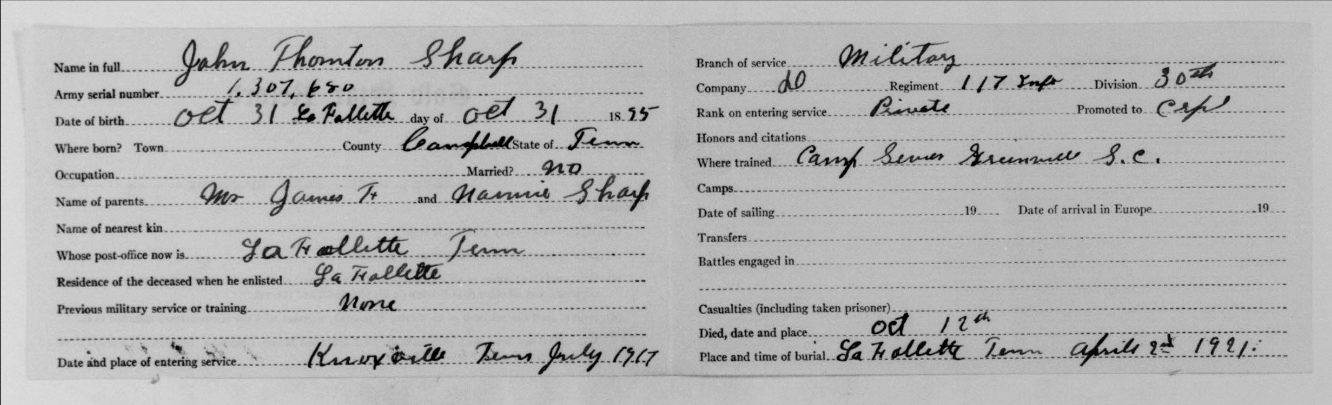 Name in full John Thornton Sharp
Army serial number 1,307,680
Date of birth Oct 31 La Follette day of Oct 31 1895
Where born? Town County Campbell State of Tenn
Occupation Married? No
Name of parents Mr James F and Nannie Sharp
Name of nearest kin
Whose post-office now is La Follette Tenn
Residence of the deceased when he enlisted La Follette
Previous military service or training None
Date and place of entering service Knoxville Tenn July 1917
Branch of service Military
Company D Regiment 117 Inf Division 30th
Rank on entering service Private Promoted to Corpl
Honors and citations
Where trained Camp Sevier Greenville S.C.
Camps
Date of sailing 19 Date of arrival in Europe 19
Transfers
Battles engaged in
Casualties (including taken prisoner)
Died, date and place Oct 12th
Place and time of burial La Follette Tenn April 2nd 1921.